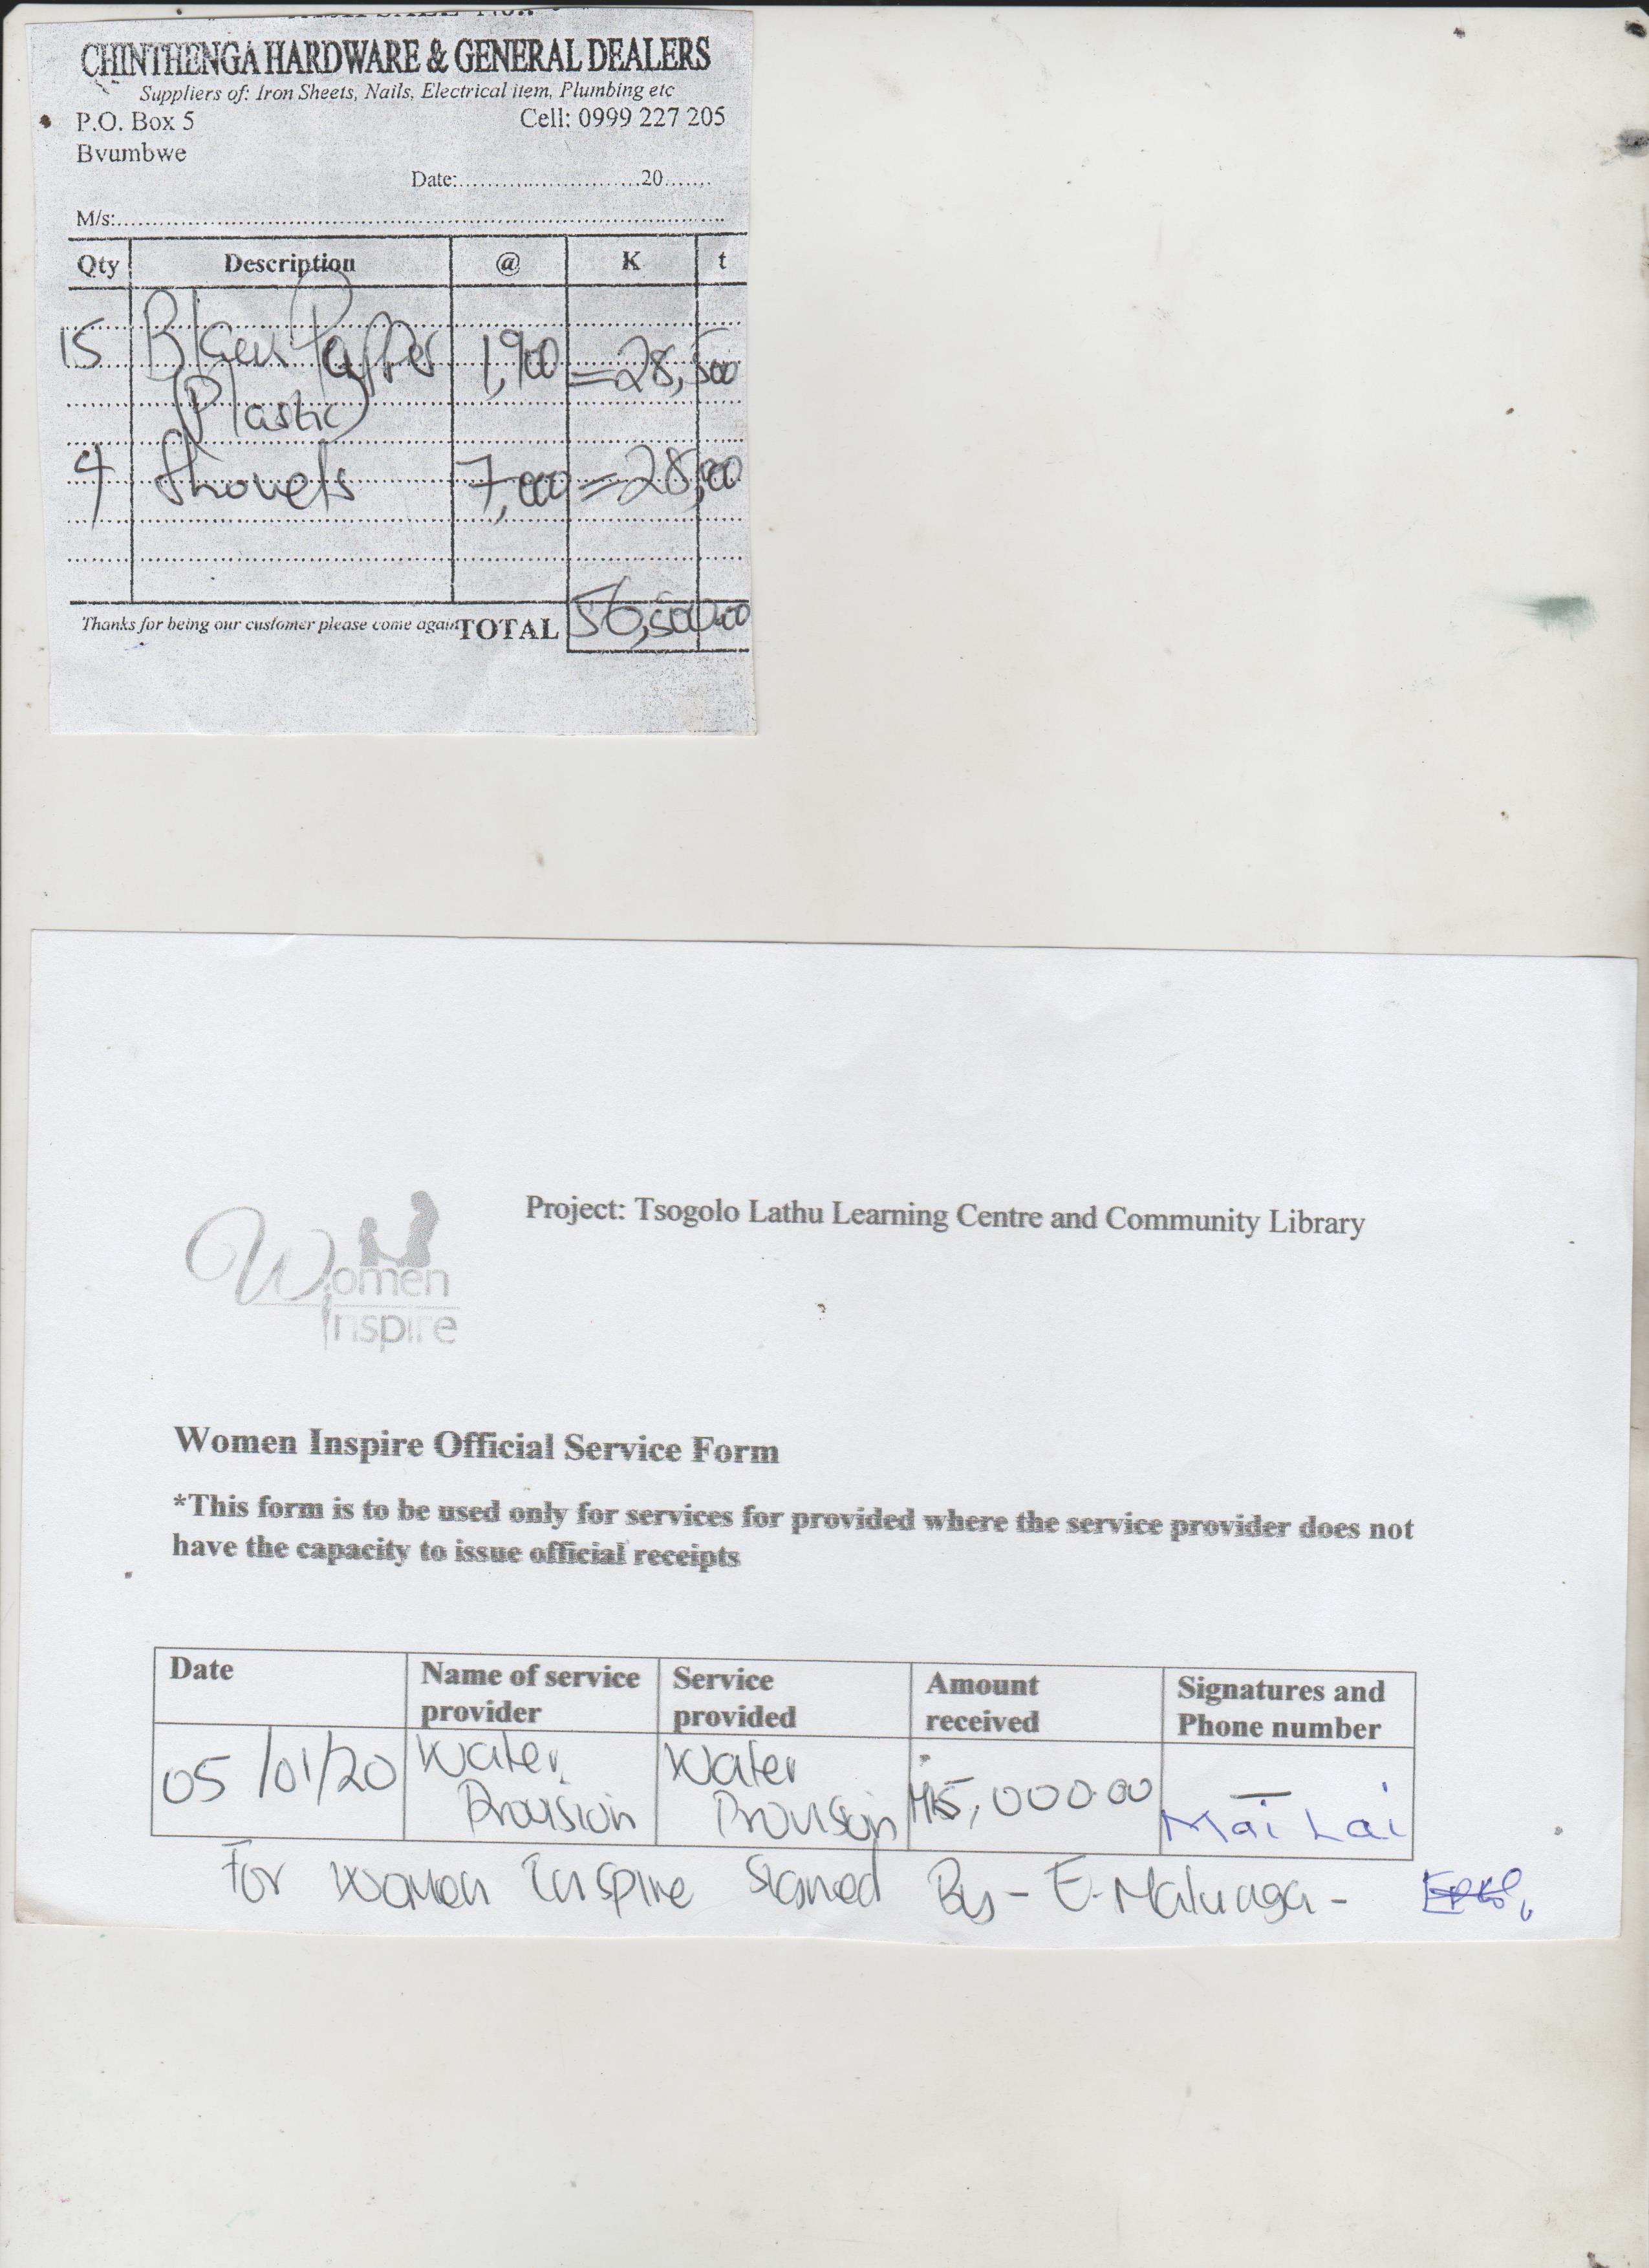 CHINTHENGA HARDWARE & GENERAL DEALERS
Suppliers of: Iron Sheets, Nails, Electrical item, Plumbing etc
P.O. Box 5 Cell: 0999 227 205
Bvumbwe
Date:...........................20.......
M/s:..........................................................................................
Qty Description @ K t
15 1,900 =28,500
Plastic
4 Shovels 7,000 =28,000
Thanks for being our customer please come again TOTAL 56,500.00
Project: Tsogolo Lathu Learning Centre and Community Library
Women
Inspire
Women Inspire Official Service Form
*This form is to be used only for services for provided where the service provider does not
have the capacity to issue official receipts
Date Name of service provider Service provided Amount received Signatures and Phone number
05/01/20 Water Provision Water Provision MK5,000.00 Mai Lai
For Women Inspire Signed By - E. Maluaga -